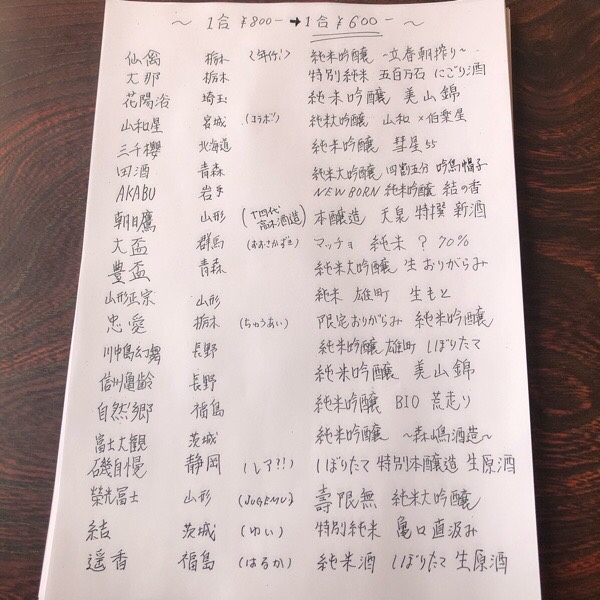 ～ 1合 ¥800- → 1合 ¥600- ～
仙禽 栃木 (年行!) 純米吟醸 ～立春朝搾り～
大那 栃木 特別純米 五百万石 にごり酒
花陽浴 埼玉 純米吟醸 美山錦
山和星 宮城 (コラボ!) 純米大吟醸 山和×伯楽星
三千櫻 北海道 純米吟醸 彗星55
田酒 青森 純米大吟醸 四割五分 吟烏帽子
AKABU 岩手 NEWBORN 純米吟醸 結の香
朝日鷹 山形 (十四代 高木酒造) 本醸造 天泉 特撰 新酒
大盃 群馬 (おおさかずき) マッチョ 純米 ? 70%
豊盃 青森 純米大吟醸 生おりがらみ
山形正宗 山形 純米 雄町 生もと
忠愛 栃木 (ちゅうあい) 限定おりがらみ 純米吟醸
川中島幻舞 長野 純米吟醸 雄町 しぼりたて
信州亀齢 長野 純米吟醸 美山錦
自然郷 福島 純米吟醸 BIO 荒走り
富士大観 茨城 純米吟醸 ～森嶋酒造～
磯自慢 静岡 (レア?!) しぼりたて 特別本醸造 生原酒
榮光冨士 山形 (JUGEMU) 壽限無 純米大吟醸
結 茨城 (ゆい) 特別純米 亀口直汲み
遥香 福島 (はるか) 純米酒 しぼりたて 生原酒